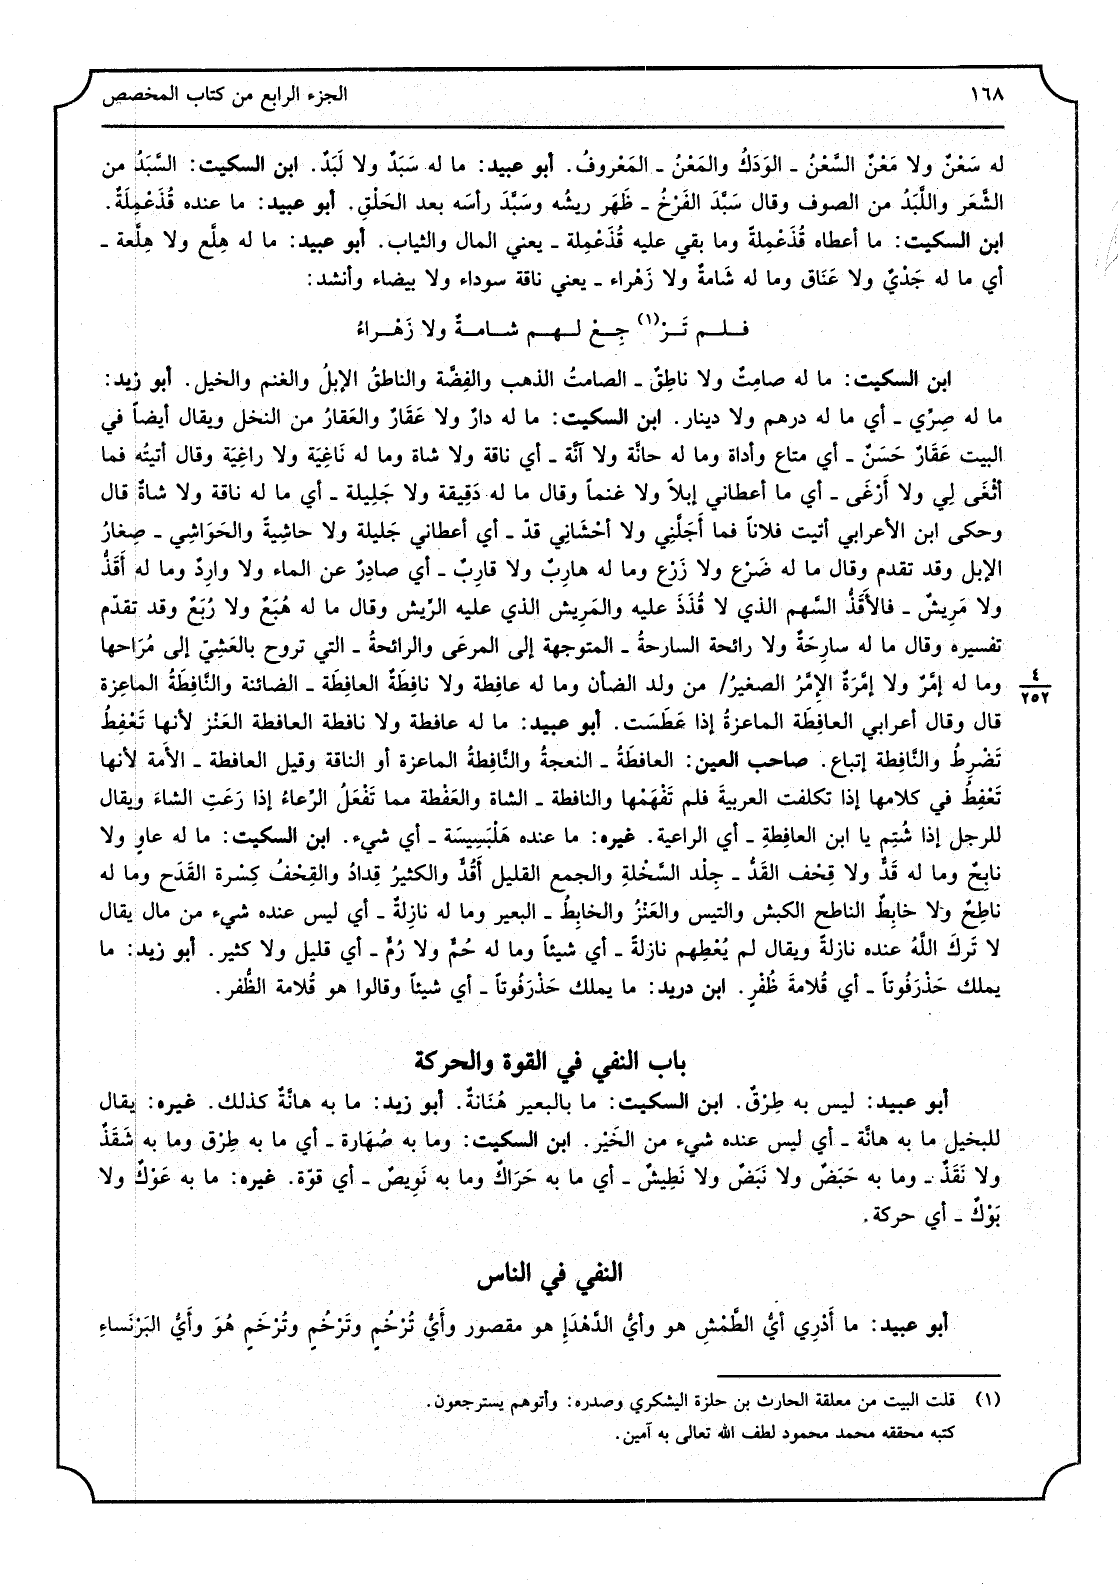 ١٦٨
الجزء الرابع من كتاب المخصص
له سَعْنٌ ولا مَعْنٌ السَّعْنُ ـ الوَدَكُ والمَعْنُ ـ المَعْروفُ. أبو عبيد: ما له سَبَدٌ ولا لَبَدٌ. ابن السكيت: السَّبَدُ من
الشَّعَر واللَّبَدُ من الصوف وقال سَبَّدَ الفَرْخُ ـ ظَهَر ريشه وسَبَّدَ رأسَه بعد الحَلْقِ. أبو عبيد: ما عنده قُذَعْمِلَةٌ.
ابن السكيت: ما أعطاه قُذَعْمِلةً وما بقي عليه قُذَعْمِلة ـ يعني المال والثياب. أبو عبيد: ما له هِلَّع ولا هِلَّعة ـ
أي ما له جَدْيٌ ولا عَنَاق وما له شَامةٌ ولا زَهْراء ـ يعني ناقة سوداء ولا بيضاء وأنشد:
فلم تَرْ(١) جِعْ لهم شامةٌ ولا زَهْراءُ
ابن السكيت: ما له صامِتٌ ولا ناطِقٌ ـ الصامتُ الذهب والفِضَّة والناطقُ الإبلُ والغنم والخيل. أبو زيد:
ما له صِرِّي ـ أي ما له درهم ولا دينار. ابن السكيت: ما له دارٌ ولا عَقَارٌ والعَقارُ من النخل ويقال أيضاً في
البيت عَقَارٌ حَسَنٌ ـ أي متاع وأداة وما له حانَّة ولا آنَّة ـ أي ناقة ولا شاة وما له ثَاغِيَة ولا راغِيَة وقال أتيتُه فما
أثْغَى لِي ولا أَرْغَى ـ أي ما أعطاني إبلاً ولا غنماً وقال ما له دَقِيقة ولا جَلِيلة ـ أي ما له ناقة ولا شاةٌ قال
وحكى ابن الأعرابي أتيت فلاناً فما أَجَلَّنِي ولا أحْشَانِي قدّ ـ أي أعطاني جَليلة ولا حاشِيةً والحَوَاشِي ـ صِغارُ
الإبل وقد تقدم وقال ما له ضَرْع ولا زَرْع وما له هارِبٌ ولا قارِبٌ ـ أي صادِرٌ عن الماء ولا وارِدٌ وما له أَقَذُّ
ولا مَرِيشٌ ـ فالأَقَذُّ السَّهم الذي لا قُذَذَ عليه والمَرِيش الذي عليه الرِّيش وقال ما له هُبَعٌ ولا رُبَعٌ وقد تقدّم
تفسيره وقال ما له سارِحَةٌ ولا رائحة السارحةُ ـ المتوجهة إلى المرعَى والرائحةُ ـ التي تروح بالعَشِيّ إلى مُرَاحها
وما له إمَّرٌ ولا إمَّرَةٌ الإمَّرُ الصغيرُ/ من ولد الضأن وما له عافِطة ولا نافِطَةٌ العافِطَة ـ الضائنة والنَّافِطَةُ الماعِزة
٤
٢٥٢
قال وقال أعرابي العافِطَة الماعزةُ إذا عَطَسَت. أبو عبيد: ما له عافطة ولا نافطة العافطة العَنْز لأنها تَعْفِطُ
تَضْرِطُ والنَّافِطة إتباع. صاحب العين: العافطَةُ ـ النعجةُ والنَّافِطةُ الماعزة أو الناقة وقيل العافطة ـ الأَمة لأنها
تَعْفِطُ في كلامها إذا تكلفت العربيةَ فلم تَفْهَمْها والنافطة ـ الشاة والعَفْطة مما تَفْعَلُ الرِّعاءُ إذا رَعَتِ الشاءَ ويقال
للرجل إذا شُتِم يا ابن العافِطةِ ـ أي الراعية. غيره: ما عنده هَلْبَسِيسَة ـ أي شيء. ابن السكيت: ما له عاوٍ ولا
نابِحٌ وما له قَدٌّ ولا قِحْف القَدُّ ـ جِلْد السَّخْلةِ والجمع القليل أَقُدٌّ والكثيرُ قِدادٌ والقِحْفُ كِسْرة القَدَح وما له
ناطِحٌ ولا خابِطٌ الناطح الكبش والتيس والعَنْزُ والخابِطُ ـ البعير وما له نازِلةٌ ـ أي ليس عنده شيء من مال يقال
لا تَركَ اللَّهُ عنده نازلةً ويقال لم يُعْطِهم نازلةً ـ أي شيئاً وما له حُمٌّ ولا رُمٌّ ـ أي قليل ولا كثير. أبو زيد: ما
يملك حَذْرَفُوتاً ـ أي قُلامةَ ظُفْرٍ. ابن دريد: ما يملك حَذْرَفُوتاً ـ أي شيئاً وقالوا هو قُلامة الظُّفر.
باب النفي في القوة والحركة
أبو عبيد: ليس به طِرْقٌ. ابن السكيت: ما بالبعير هُنَانةٌ. أبو زيد: ما به هانَّةٌ كذلك. غيره: يقال
للبخيل ما به هانَّة ـ أي ليس عنده شيء من الخَيْر. ابن السكيت: وما به صُهَارة ـ أي ما به طِرْق وما به شَقَذٌ
ولا نَقَذٌ ـ وما به حَبَضٌ ولا نَبَضٌ ولا نَطِيشٌ ـ أي ما به حَرَاكٌ وما به نَوِيصٌ ـ أي قوّة. غيره: ما به عَوْكٌ ولا
بَوْكٌ ـ أي حركة.
النفي في الناس
أبو عبيد: ما أَدْرِي أيُّ الطَّمْشِ هو وأيُّ الدَّهْدَإِ هو مقصور وأَيُّ تُرْخُمٍ وتَرْخُمٍ وتُرْخَمٍ هُوَ وأَيُّ البَرْنَساءِ
(١) قلت البيت من معلقة الحارث بن حلزة اليشكري وصدره: وأتوهم يسترجعون.
كتبه محققه محمد محمود لطف الله تعالى به آمين.